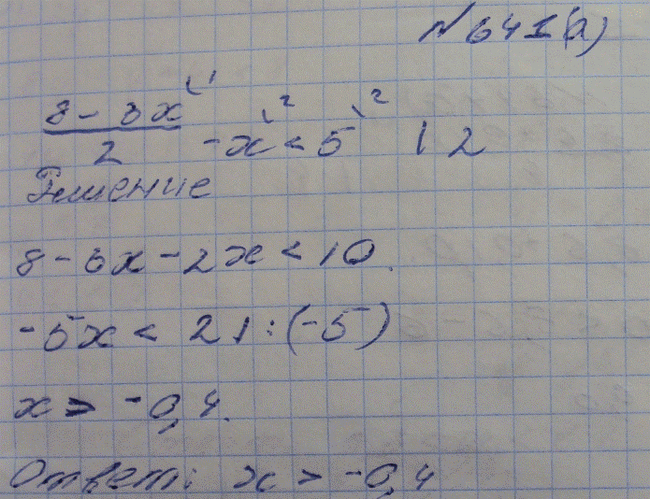 №641(а)
8-3x⁽¹
─── -x⁽² < 5⁽² | 2
2
Решение
8-3x-2x<10.
-5x < 2 | :(-5)
x > -0,4.
Ответ: x > -0,4